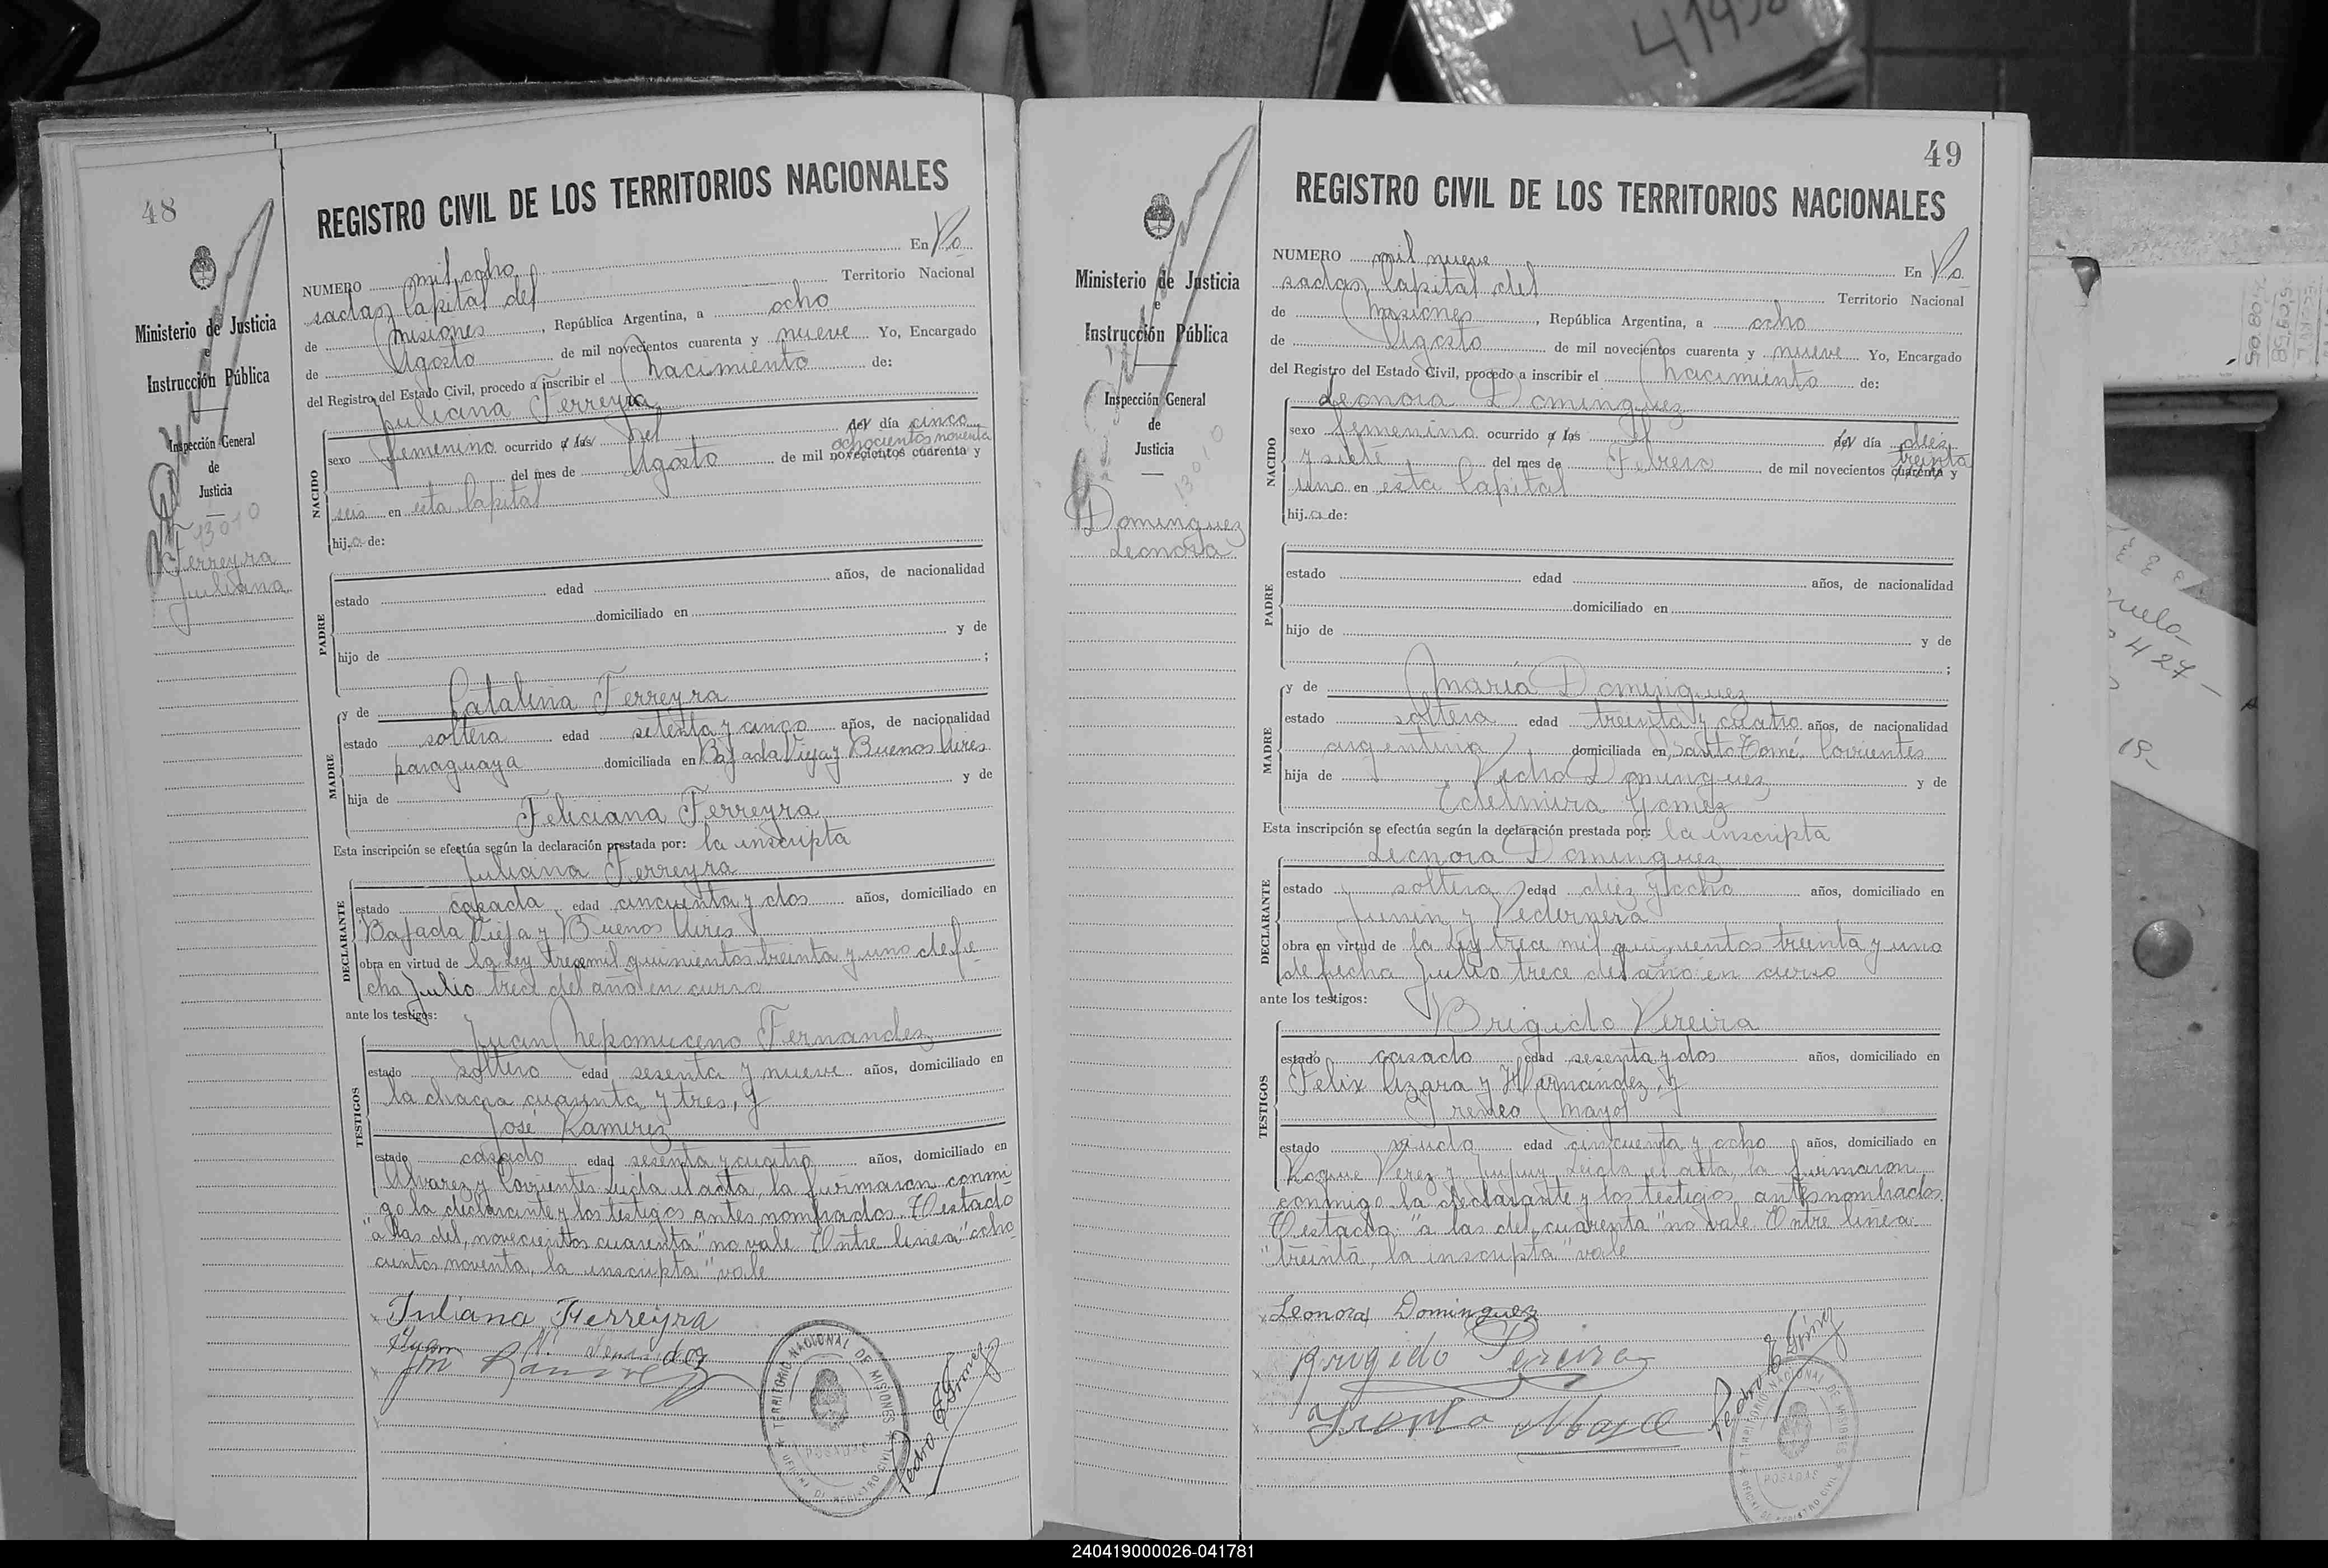 41958
48
REGISTRO CIVIL DE LOS TERRITORIOS NACIONALES
Ministerio de Justicia
e
Instrucción Pública
Inspección General
de
Justicia
13010
Ferreyra
Juliana
NUMERO mil ocho En Po
sadas, Capital del Territorio Nacional
de Misiones, República Argentina, a ocho
de Agosto de mil novecientos cuarenta y nueve Yo, Encargado
del Registro del Estado Civil, procedo a inscribir el Nacimiento de:
Juliana Ferreyra
NACIDO
sexo femenino ocurrido a las del día cinco
ochocientos noventa
del mes de Agosto de mil novecientos cuarenta y
seis en esta Capital
hija de:
PADRE
estado edad años, de nacionalidad
domiciliado en
hijo de y de
;
y de Catalina Ferreyra
MADRE
estado soltera edad setenta y cinco años, de nacionalidad
paraguaya domiciliada en Bajada Vieja y Buenos Aires
hija de y de
Feliciana Ferreyra
Esta inscripción se efectúa según la declaración prestada por: la inscripta
Juliana Ferreyra
DECLARANTE
estado casada edad cincuenta y dos años, domiciliado en
Bajada Vieja y Buenos Aires
obra en virtud de la Ley trece mil quinientos treinta y uno de fe
cha Julio trece del año en curso
ante los testigos:
Juan Nepomuceno Fernandez
TESTIGOS
estado soltero edad sesenta y nueve años, domiciliado en
la chacra cuarenta y tres, y
José Ramirez
estado casado edad sesenta y cuatro años, domiciliado en
Alvarez y Corrientes. Leida el acta, la firmaron conmi
go la declarante y los testigos antes nombrados. Testado
"a las del, novecientos cuarenta" no vale. Entre linea: "ocho
cientos noventa, la inscripta" vale
Juliana Ferreyra
Juan N. Fernandez
José Ramirez
Pedro E Gómez
TERRITORIO NACIONAL DE MISIONES
POSADAS
OFICINA DE REGISTRO CIVIL
49
REGISTRO CIVIL DE LOS TERRITORIOS NACIONALES
Ministerio de Justicia
e
Instrucción Pública
Inspección General
de
Justicia
13010
Dominguez
Leonora
NUMERO mil nueve En Po
sadas, Capital del Territorio Nacional
de Misiones, República Argentina, a ocho
de Agosto de mil novecientos cuarenta y nueve Yo, Encargado
del Registro del Estado Civil, procedo a inscribir el Nacimiento de:
Leonora Dominguez
NACIDO
sexo femenino ocurrido a las el del día diez
treinta
y siete del mes de Febrero de mil novecientos cuarenta y
uno en esta Capital
hija de:
PADRE
estado edad años, de nacionalidad
domiciliado en
hijo de y de
;
y de María Dominguez
MADRE
estado soltera edad treinta y cuatro años, de nacionalidad
argentina domiciliada en Santo Tomé, Corrientes
hija de Pedro Dominguez y de
Edelmira Gomez
Esta inscripción se efectúa según la declaración prestada por: la inscripta
Leonora Dominguez
DECLARANTE
estado soltera edad diez y ocho años, domiciliado en
Junin y Pedernera
obra en virtud de la Ley trece mil quinientos treinta y uno
de fecha Julio trece del año en curso
ante los testigos:
Brigido Pereira
TESTIGOS
estado casado edad sesenta y dos años, domiciliado en
Felix Azara y Hernández, y
Ireneo Mayol
estado viudo edad cincuenta y ocho años, domiciliado en
Roque Perez y Jujuy. Leida el acta, la firmaron
conmigo la declarante y los testigos antes nombrados.
Testado: "a las del, cuarenta" no vale. Entre linea:
"treinta, la inscripta" vale
Leonora Dominguez
Brigido Pereira
Ireneo Mayol
Pedro E Gómez
TERRITORIO NACIONAL DE MISIONES
POSADAS
OFICINA DE REGISTRO CIVIL
240419000026-041781